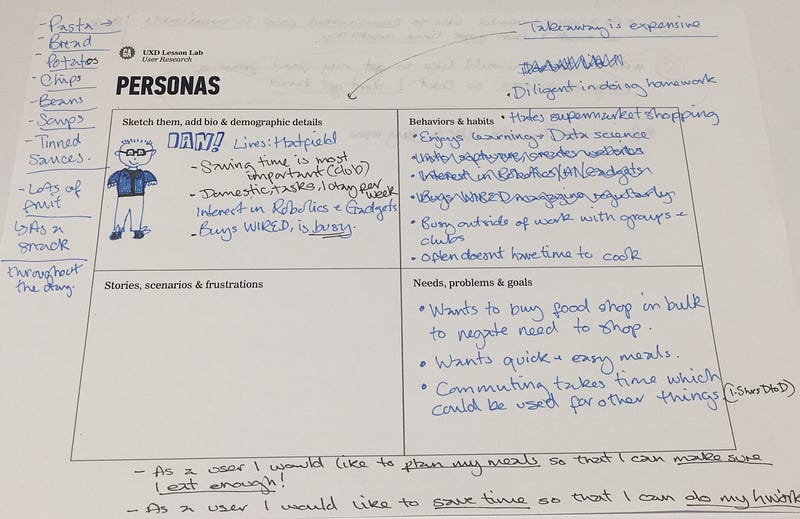 - Pasta →
- Bread
- Potatos
- Chips
- Beans
- Soups
- Tinned
Sauces.
- Lots of
fruit
↳ As a
snack
throughout
the day.
- Takeaway is expensive
• Diligent in doing homework
UXD Lesson Lab
User Research
PERSONAS
Sketch them, add bio & demographic details
DAN! Lives: Hatfield
- Saving time is most
important (club)
- Domestic tasks, 1 day per
week
Interest in Robotics + Gadgets
- Buys WIRED, is busy.
Behaviors & habits • Hates supermarket shopping
• Enjoys learning + Data science
• Interest in Robotics/AI/Gadgets
• Buys WIRED magazine regularly.
• Busy outside of work with groups +
clubs
• Often doesnt have time to cook
Stories, scenarios & frustrations
Needs, problems & goals
• Wants to buy food shop in bulk
to negate need to shop.
• Wants quick + easy meals.
• Commuting takes time which
could be used for other things. (1.5hrs DtoD)
- As a user I would like to plan my meals so that I can make sure
I eat enough!
- As a user I would like to save time so that I can do my hwork